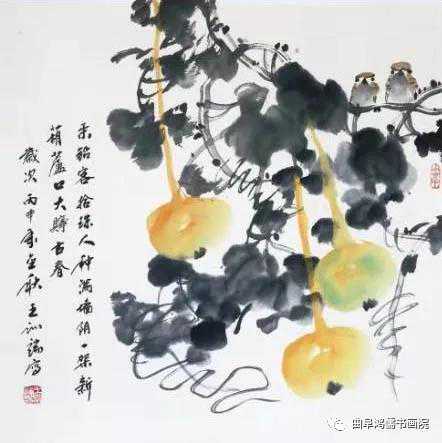 客拾人种满墙阴一架新
葫蘆口大古春
歲次丙申年金秋王瑞寫
曲阜鸿儒书画院